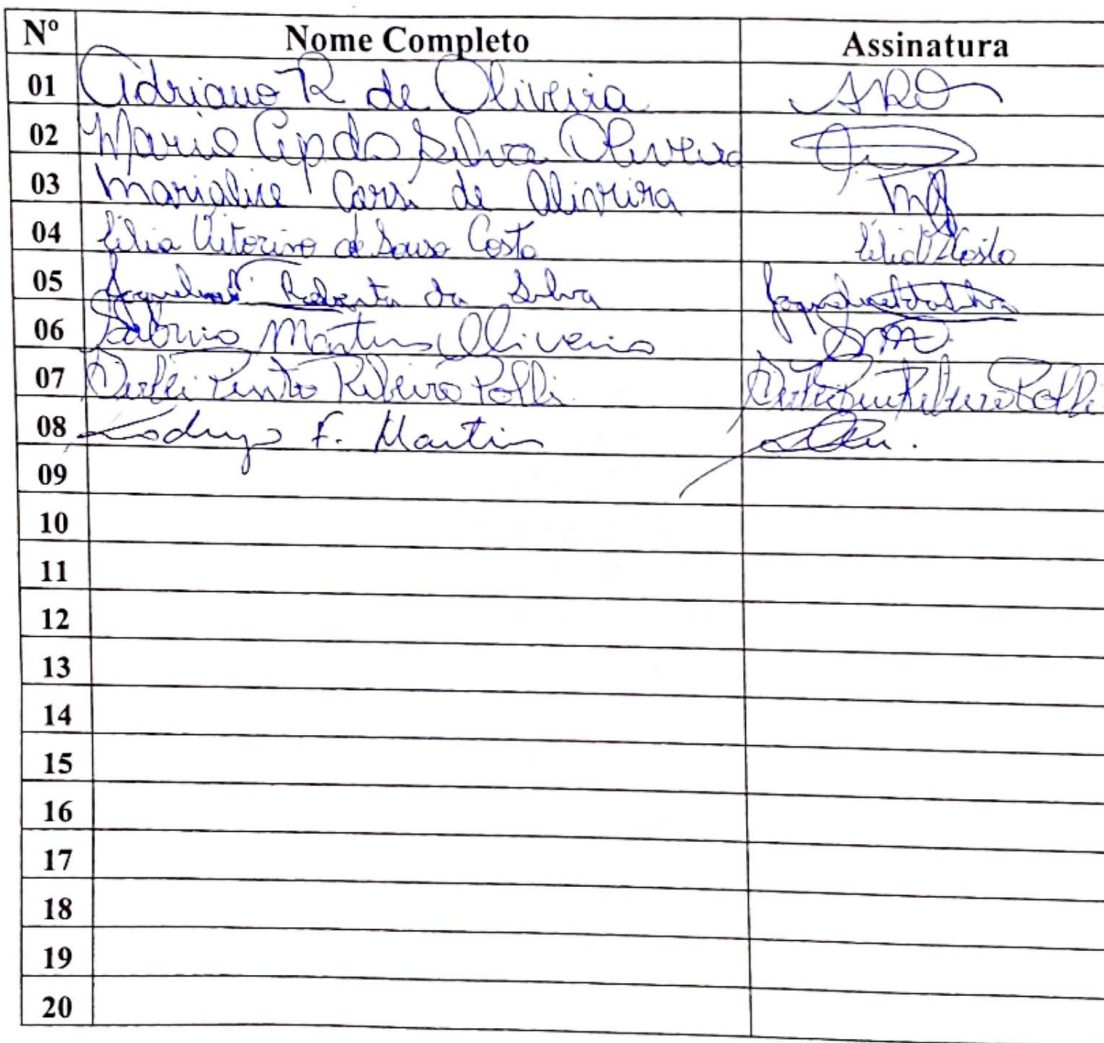 Nº Nome Completo Assinatura
01 Adriano R de Oliveira ARO
02 Maria Ap da Silva Oliveira
03 Marialice de Oliveira
04 Lilia Vitorino de Sousa Costa Lilia Costa
05 Jaqueline Roberta da Silva
06 Sabrina Martins Oliveira
07 Pinto Ribeiro Polli Ribeiro Polli
08 Rodrigo F. Martin
09
10
11
12
13
14
15
16
17
18
19
20